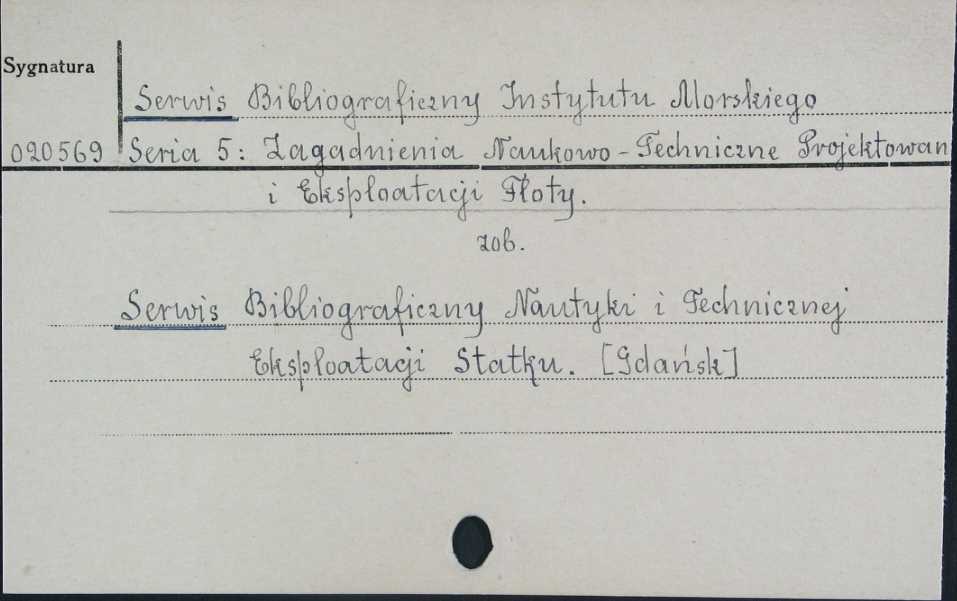 Sygnatura
Serwis Bibliograficzny Instytutu Morskiego
020569 Seria 5: Zagadnienia Naukowo-Techniczne Projektowan
i Eksploatacji Floty.
zob.
Serwis Bibliograficzny Nautyki i Technicznej
Eksploatacji Statku. [Gdańsk]